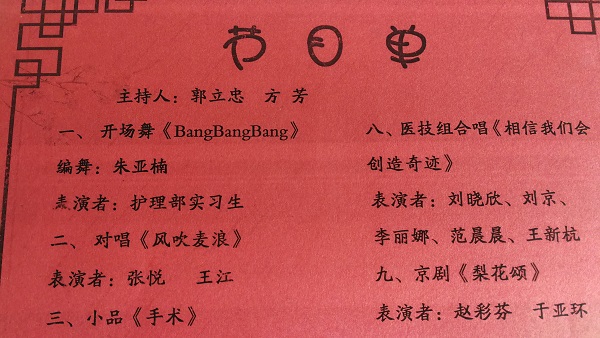 节目单
主持人：郭立忠 方芳
一、开场舞《BangBangBang》
编舞：朱亚楠
表演者：护理部实习生
二、对唱《风吹麦浪》
表演者：张悦 王江
三、小品《手术》
八、医技组合唱《相信我们会
创造奇迹》
表演者：刘晓欣、刘京、
李丽娜、范晨晨、王新杭
九、京剧《梨花颂》
表演者：赵彩芬 于亚环